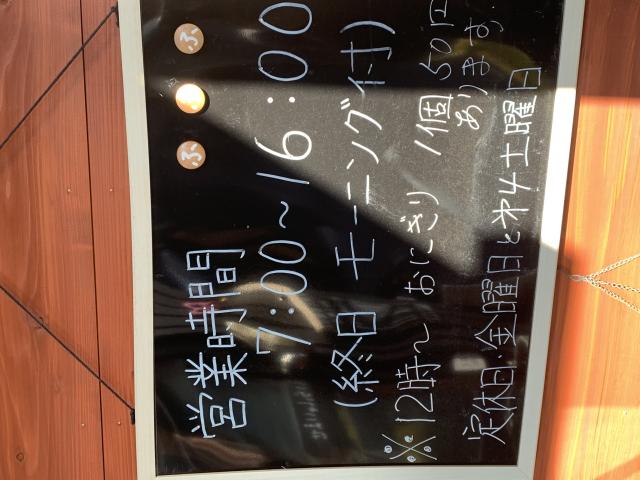 ふ ふ
営業時間
7:00~16:00
(終日 モーニング付)
※12時~ おにぎり 1個 50円
あります
定休日・金曜日と第4土曜日